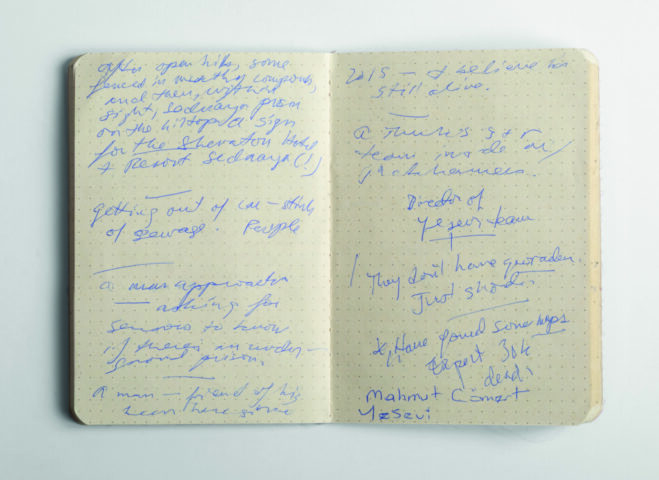 after open hills, some
fenced in wealthy compounds,
and then, within
sight, Sednaya prison
on the hilltop. A sign
for the Sheraton Hotel
& Resort Sednaya (!)
getting out of car – stink
of sewage. People
a man approaches
— asking for
to know
if there's an under-
ground prison.
a man — friend of his
been here since
2015 — I believe he's
still alive.
a
team
Director of
Yesevi team
They don't have
Just
Have found some
Expect 30k
dead.
Mahmut Cömert
Yesevi